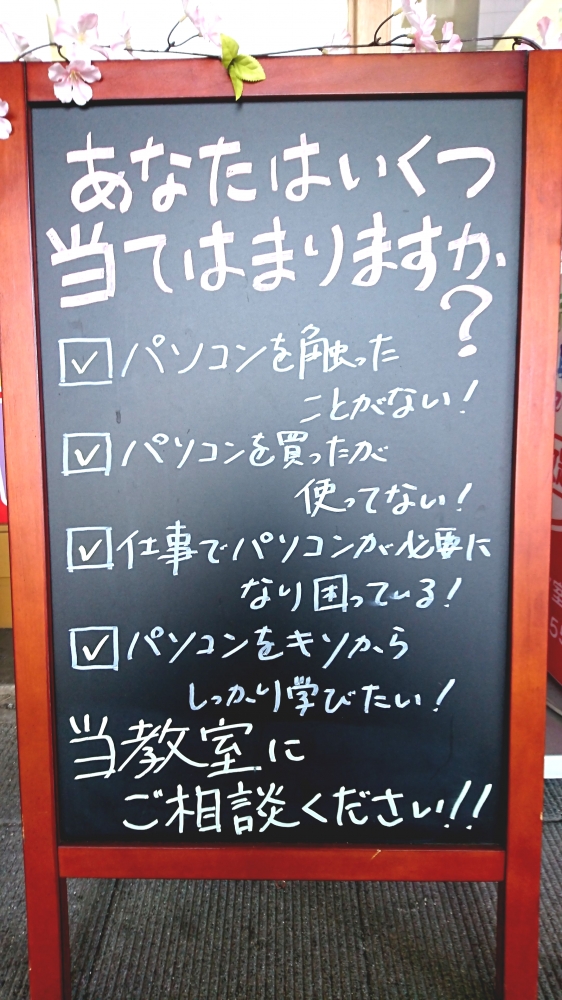 あなたはいくつ
当てはまりますか
?
☑パソコンを触った
ことがない!
☑パソコンを買ったが
使ってない!
☑仕事でパソコンが必要に
なり困っている!
☑パソコンをキソから
しっかり学びたい!
当教室に
ご相談ください!!